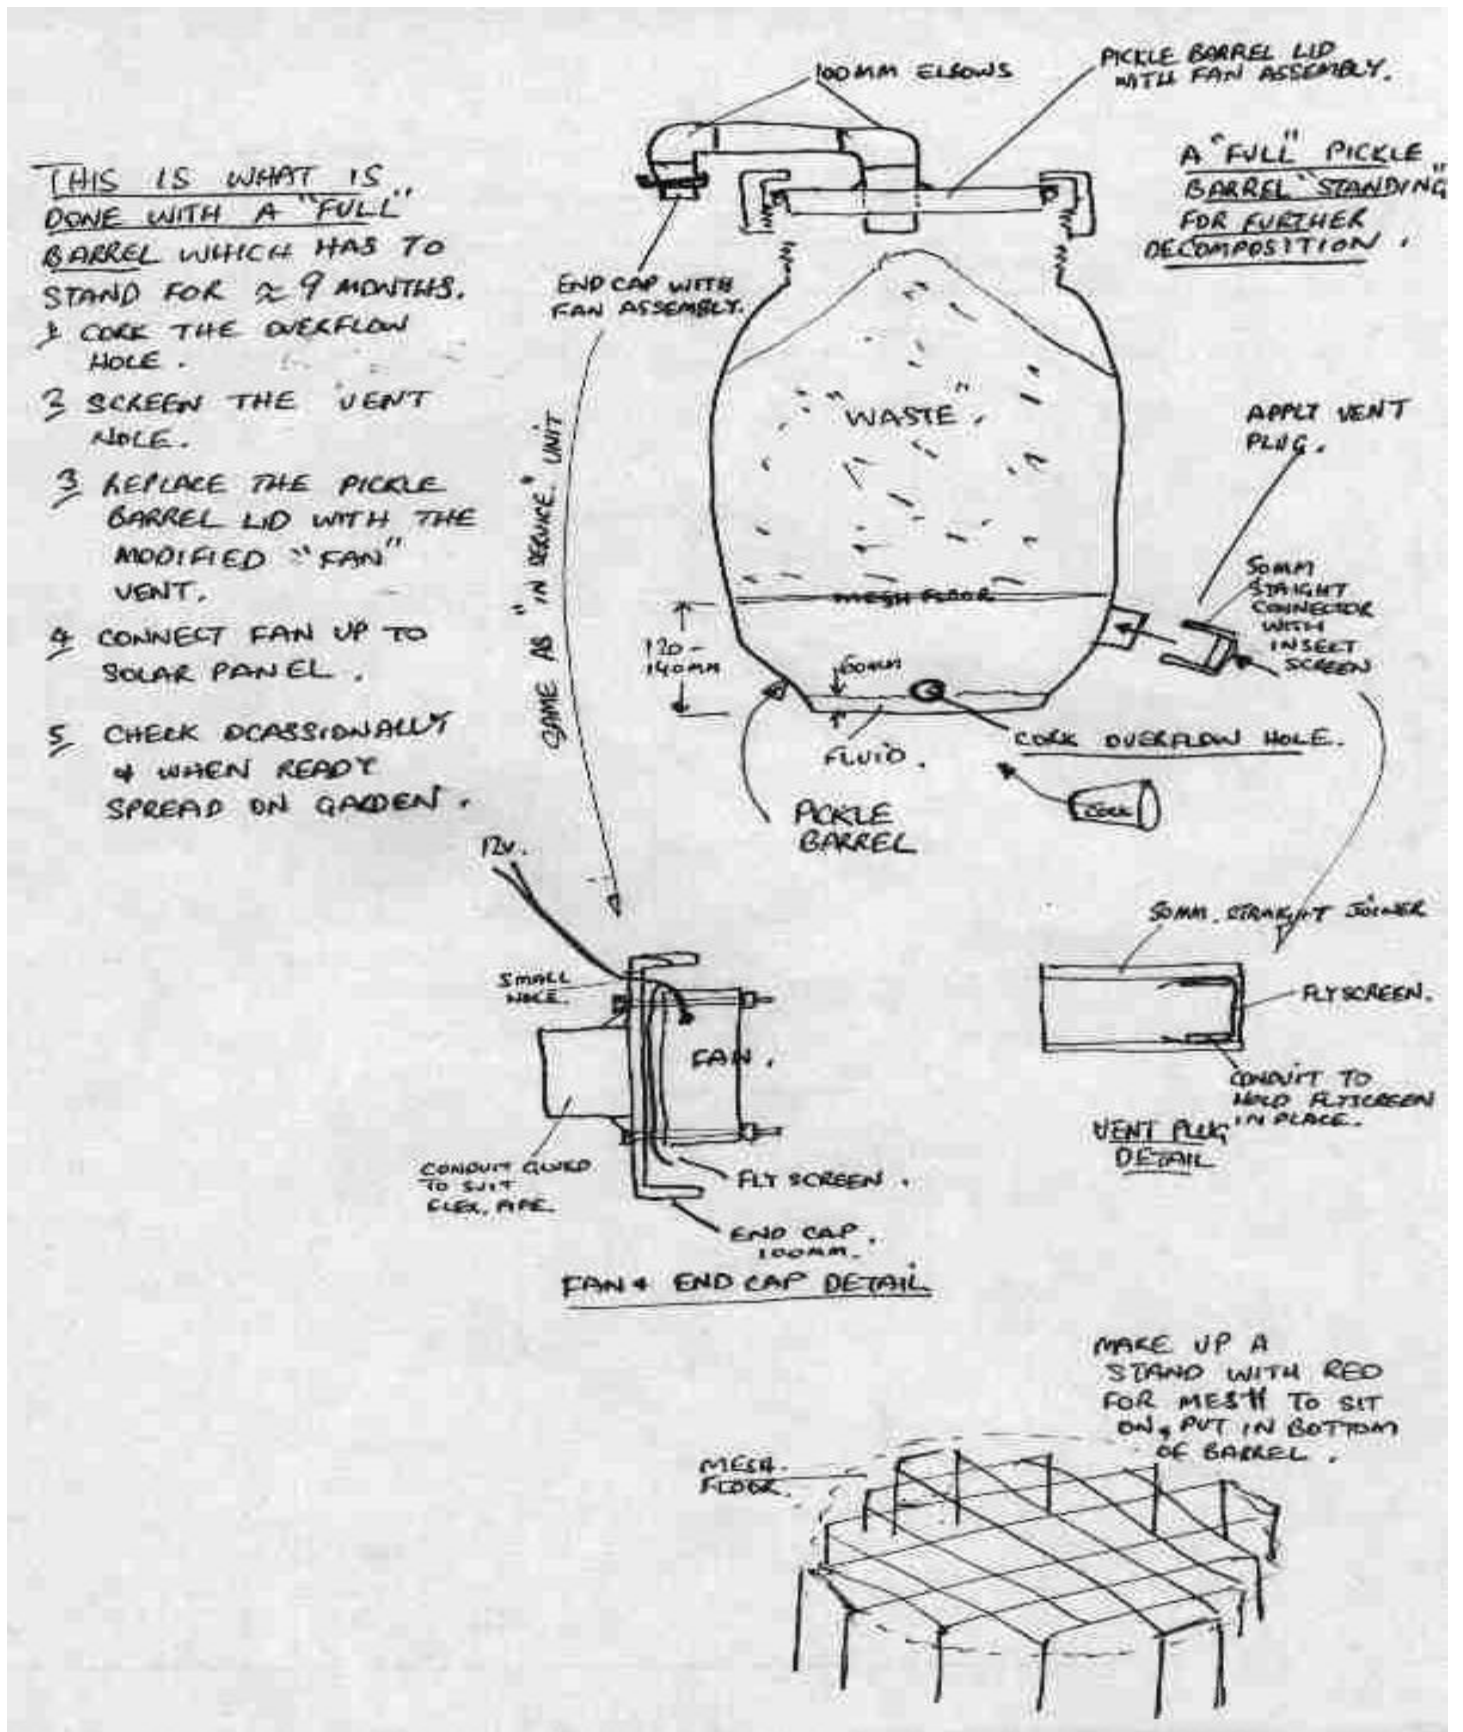 THIS IS WHAT IS
DONE WITH A "FULL"
BARREL WHICH HAS TO
STAND FOR ≈ 9 MONTHS.
1 CORK THE OVERFLOW
HOLE.
2 SCREEN THE VENT
HOLE.
3 REPLACE THE PICKLE
BARREL LID WITH THE
MODIFIED "FAN"
VENT.
4 CONNECT FAN UP TO
SOLAR PANEL.
5 CHECK OCASSIONALLY
& WHEN READY
SPREAD ON GARDEN.
100MM ELBOWS
PICKLE BARREL LID
WITH FAN ASSEMBLY.
A "FULL" PICKLE
BARREL "STANDING"
FOR FURTHER
DECOMPOSITION.
END CAP WITH
FAN ASSEMBLY.
SAME AS "IN SERVICE" UNIT
"WASTE".
APPLY VENT
PLUG.
50MM
STAIGHT
CONNECTOR
WITH
INSECT
SCREEN
MESH FLOOR
120-
140MM
60MM
FLUID.
CORK OVERFLOW HOLE.
CORK
PICKLE
BARREL
12V.
SMALL
HOLE.
FAN.
CONDUIT GLUED
TO SUIT
FLEX. PIPE.
FLY SCREEN.
END CAP.
100MM.
FAN & END CAP DETAIL
50MM. STRAIGHT JOINER
FLYSCREEN.
CONDUIT TO
HOLD FLYSCREEN
IN PLACE.
VENT PLUG
DETAIL
MAKE UP A
STAND WITH REO
FOR MESH TO SIT
ON, PUT IN BOTTOM
OF BARREL.
MESH.
FLOOR.